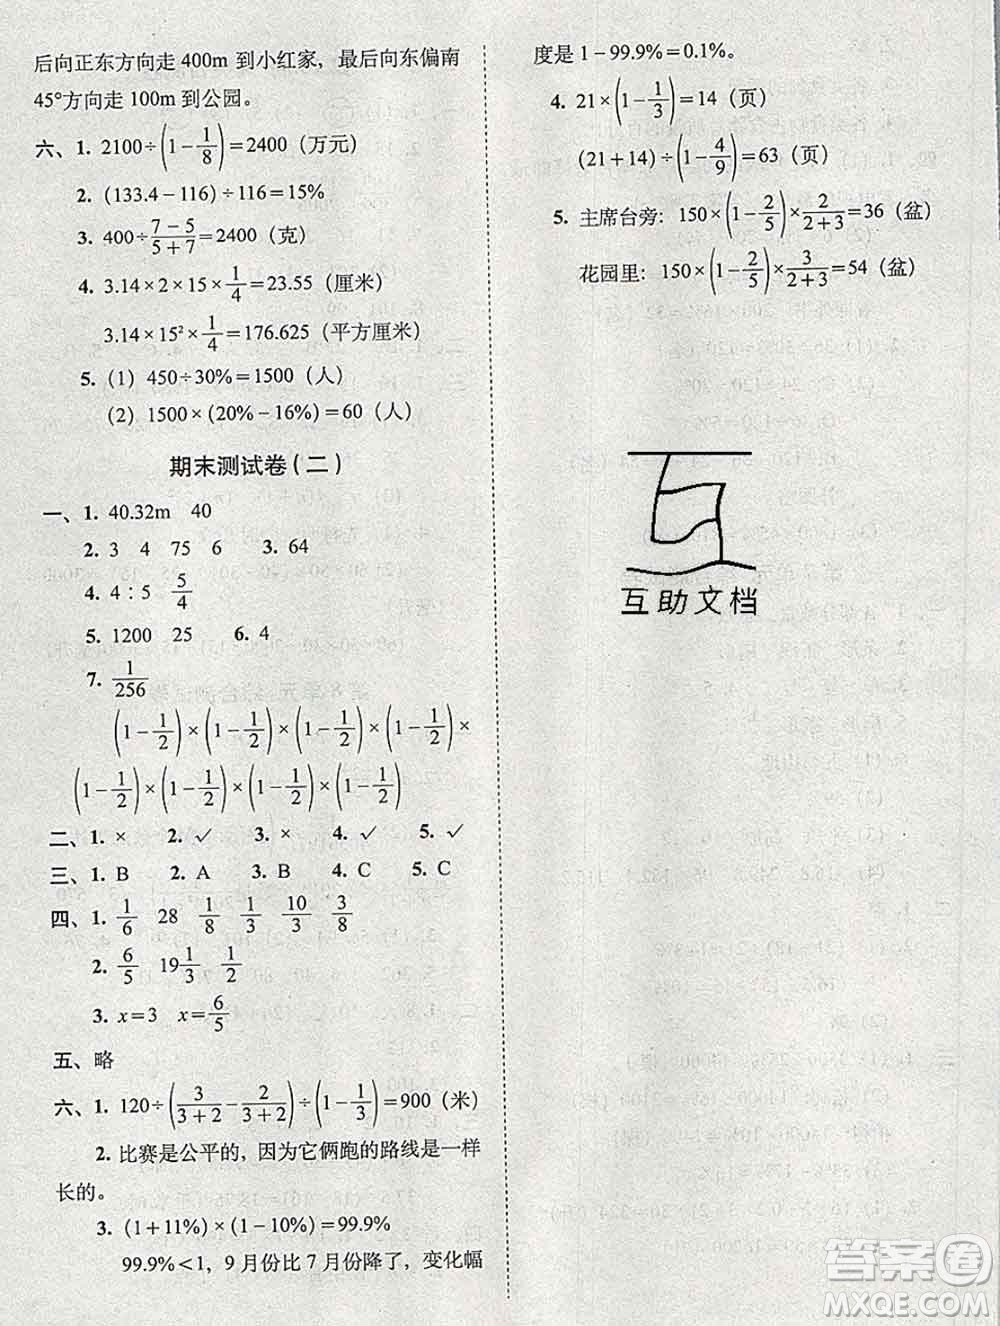 后向正东方向走 400m 到小红家，最后向东偏南
45°方向走 100m 到公园。
六、1. 2100÷(1－1/8)＝2400（万元）
2. (133.4－116)÷116＝15%
3. 400÷(7－5)/(5＋7)＝2400（克）
4. 3.14×2×15×1/4＝23.55（厘米）
3.14×15²×1/4＝176.625（平方厘米）
5.（1）450÷30%＝1500（人）
（2）1500×(20%－16%)＝60（人）
期末测试卷(二)
一、1. 40.32m 40
2. 3 4 75 6 3. 64
4. 4∶5 5/4
5. 1200 25 6. 4
7. 1/256
(1－1/2)×(1－1/2)×(1－1/2)×(1－1/2)×
(1－1/2)×(1－1/2)×(1－1/2)×(1－1/2)
二、1. × 2. ✓ 3. × 4. ✓ 5. ✓
三、1. B 2. A 3. B 4. C 5. C
四、1. 1/6 28 1/8 1/3 10/3 3/8
2. 6/5 19 1/3 1/2
3. x＝3 x＝6/5
五、略
六、1. 120÷(3/(3＋2)－2/(3＋2))÷(1－1/3)＝900（米）
2. 比赛是公平的，因为它俩跑的路线是一样
长的。
3. (1＋11%)×(1－10%)＝99.9%
99.9%＜1，9 月份比 7 月份降了，变化幅
度是 1－99.9%＝0.1%。
4. 21×(1－1/3)＝14（页）
(21＋14)÷(1－4/9)＝63（页）
5. 主席台旁：150×(1－2/5)×2/(2＋3)＝36（盆）
花园里：150×(1－2/5)×3/(2＋3)＝54（盆）
互助文档
答案圈
MXQE.COM